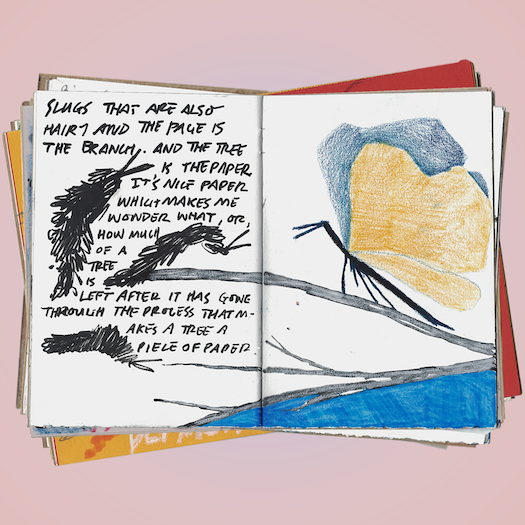 SLUGS THAT ARE ALSO
HAIRY AND THE PAGE IS
THE BRANCH. AND THE TREE
IS THE PAPER
IT'S NICE PAPER
WHICH MAKES ME
WONDER WHAT, OR,
HOW MUCH
OF A
TREE
IS
LEFT AFTER IT HAS GONE
THROUGH THE PROCESS THAT M-
AKES A TREE A
PIECE OF PAPER.